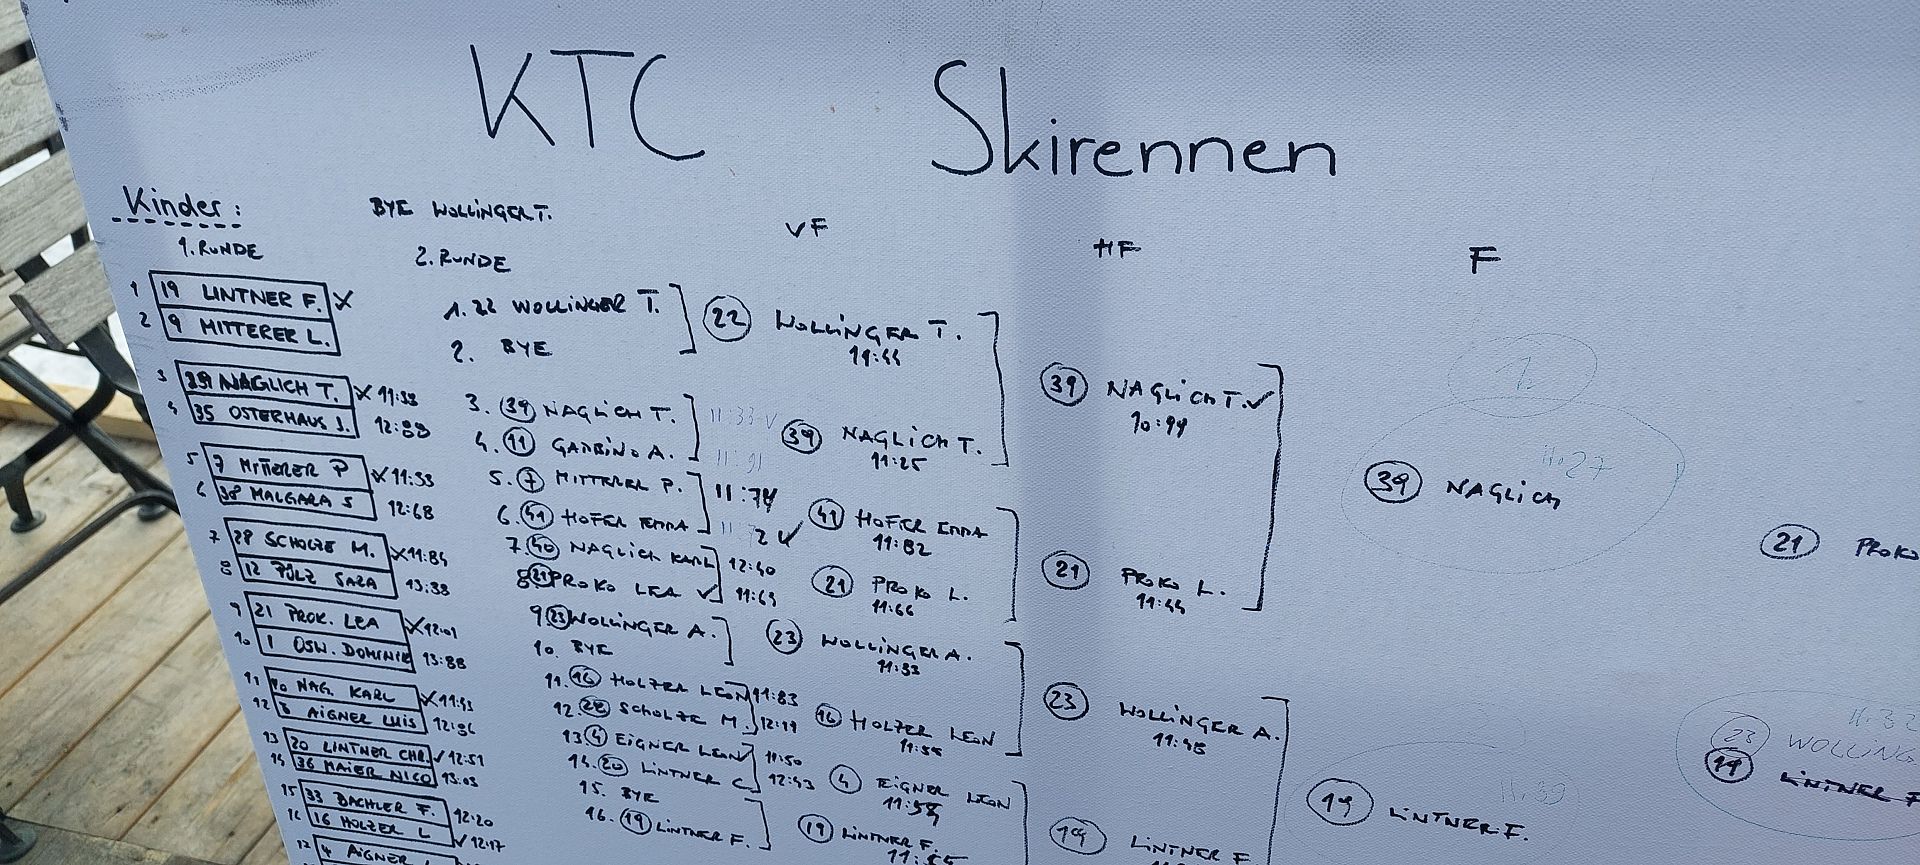 KTC Skirennen
Kinder:
BYE WOLLINGER T.
1. RUNDE
2. RUNDE
VF
HF
F
1 19 LINTNER F. X
2 9 MITTERER L.
3 39 NAGLICH T. X 11:33
4 35 OSTERHAUS J. 12:88
5 7 MITTERER P X 11:33
6 38 MALGARA S 12:68
7 28 SCHOLZE M. X 11:84
8 12 PÖLZ SARA 13:38
9 21 PROK. LEA X 12:01
10 1 OSW. DOMINIK 13:88
11 40 NAG. KARL X 11:43
12 8 AIGNER LUIS 12:36
13 20 LINTNER CHR. ✓ 12:51
14 36 MAIER NICO 13:03
15 33 BACHLER F. 12:20
16 16 HOLZER L ✓ 12:17
4 AIGNER
1. 22 WOLLINGER T.
2. BYE
3. 39 NAGLICH T. 11:33 ✓
4. 11 GARBINO A. 11:91
5. 7 MITTERER P. 11:74
6. 41 HOFER EMMA
7. 40 NAGLICH KARL 12:40
8. 21 PROKO LEA ✓ 11:69
9 23 WOLLINGER A.
10. BYE
11. 16 HOLZER LEON 11:83
12. 28 SCHOLZE M. 12:19
13 4 EIGNER LEON 11:50
14. 20 LINTNER C. 12:43
15. BYE
16. 19 LINTNER F.
22 WOLLINGER T.
11:44
39 NAGLICH T.
11:25
41 HOFER EMMA
11:82
21 PROKO L.
11:66
23 WOLLINGER A.
11:33
16 HOLZER LEON
11:55
4 EIGNER LEON
19 LINTNER F.
39 NAGLICH T. ✓
10:99
21 PROKO L.
11:44
23 WOLLINGER A.
11:45
19 LINTNER F
1.
11.27
39 NAGLICH
11.39
19 LINTNER F.
21 PROKO
11.32
23 WOLLING
19 LINTNER F